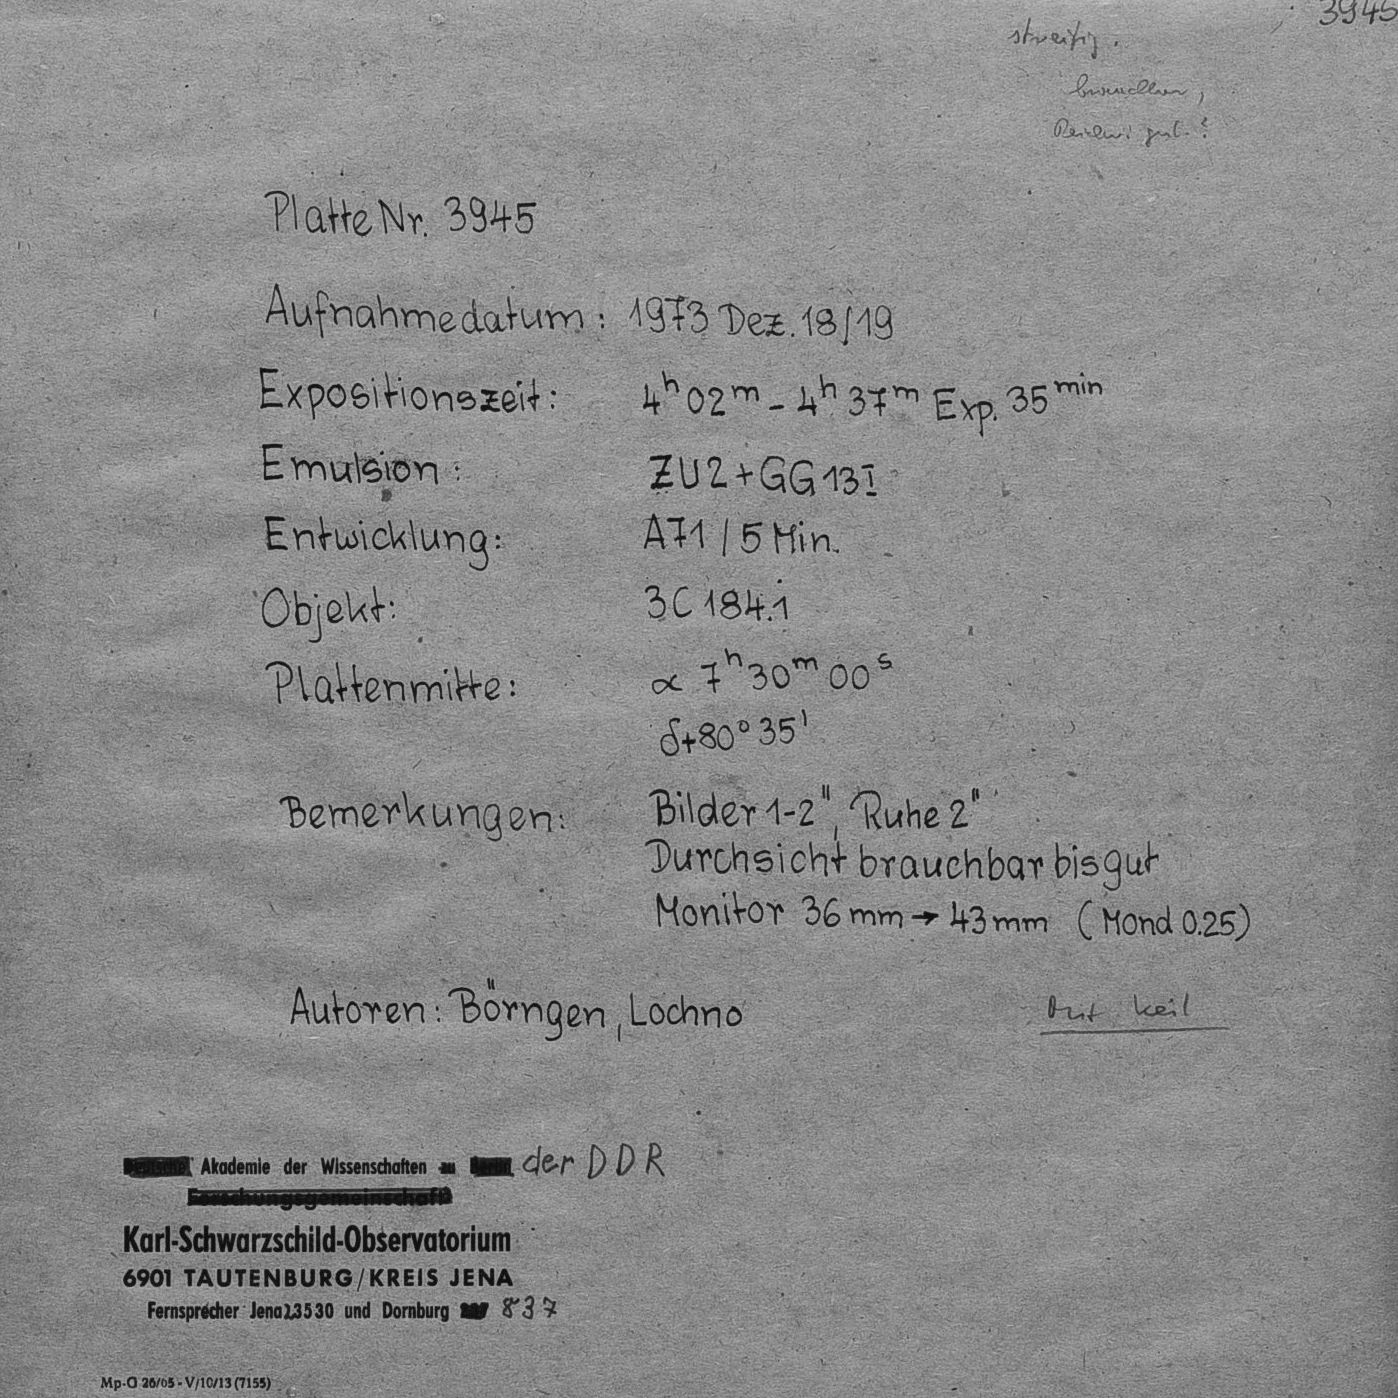 3945
streifig.
brauchbar,
gut.?
Platte Nr. 3945
Aufnahmedatum: 1973 Dez. 18/19
Expositionszeit: 4h 02m - 4h 37m Exp. 35min
Emulsion: ZU2+GG13I
Entwicklung: A71 / 5 Min.
Objekt: 3C 184.1
Plattenmitte: α 7h 30m 00s
δ+80° 35'
Bemerkungen: Bilder 1-2", Ruhe 2"
Durchsicht brauchbar bis gut
Monitor 36 mm → 43 mm (Mond 0.25)
Autoren: Börngen, Lochno
mit Keil
Akademie der Wissenschaften zu Berlin der DDR
Forschungsgemeinschaft
Karl-Schwarzschild-Observatorium
6901 TAUTENBURG/KREIS JENA
Fernsprecher Jena 23530 und Dornburg 837
Mp-G 26/65 - V/10/13 (7155)